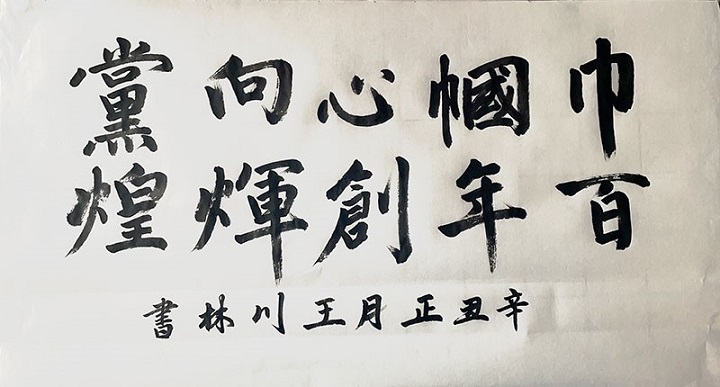 巾幗心向黨
百年創煇煌
辛丑正月王川林書